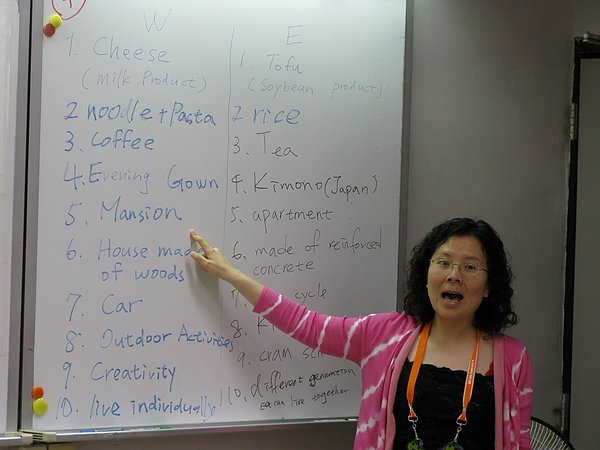 W
1. Cheese
(Milk Product)
2 noodle + Pasta
3. Coffee
4. Evening Gown
5. Mansion
6. House made
of woods
7. Car
8. Outdoor Activities
9. Creativity
10. live individually
E
1. Tofu
(Soybean product)
2 rice
3. Tea
4. Kimono (Japan)
5. apartment
6. made of reinforced
concrete
7. cycle
8.
9. cram
10. different generation
can live together